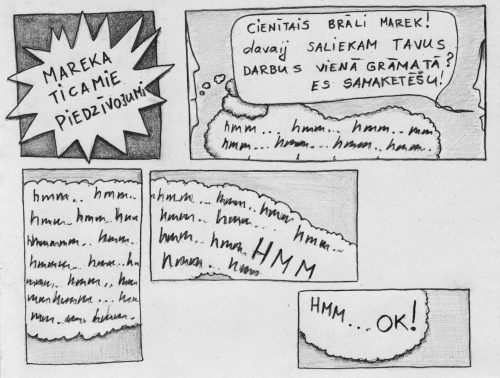 MAREKA
TICAMIE
PIEDZĪVOJUMI
CIENĪTAIS BRĀLI MAREK!
davaij SALIEKAM TAVUS
DARBUS VIENĀ GRĀMATĀ?
ES SAMAKETĒŠU!
hmm... hmm... hmm.. mm
hmm... hmm... hmm.. hmm.
hmm.. hmm..
hmm.. hmm. hmm
hmmmm.. hmm.
hmmm.. hmm.. h
hmm.. hmm.. hm
mmhmmm... hm
mm.. mm. hmm.
hmm... hmm.. hmm
hmm.. hmm.. hmm..
hmm.. hmm.
hmm.. hm
HMM
HMM... OK!